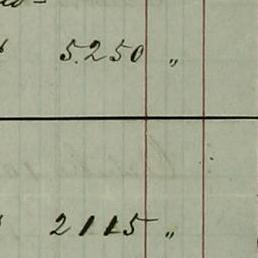 5.250 "
2115 "